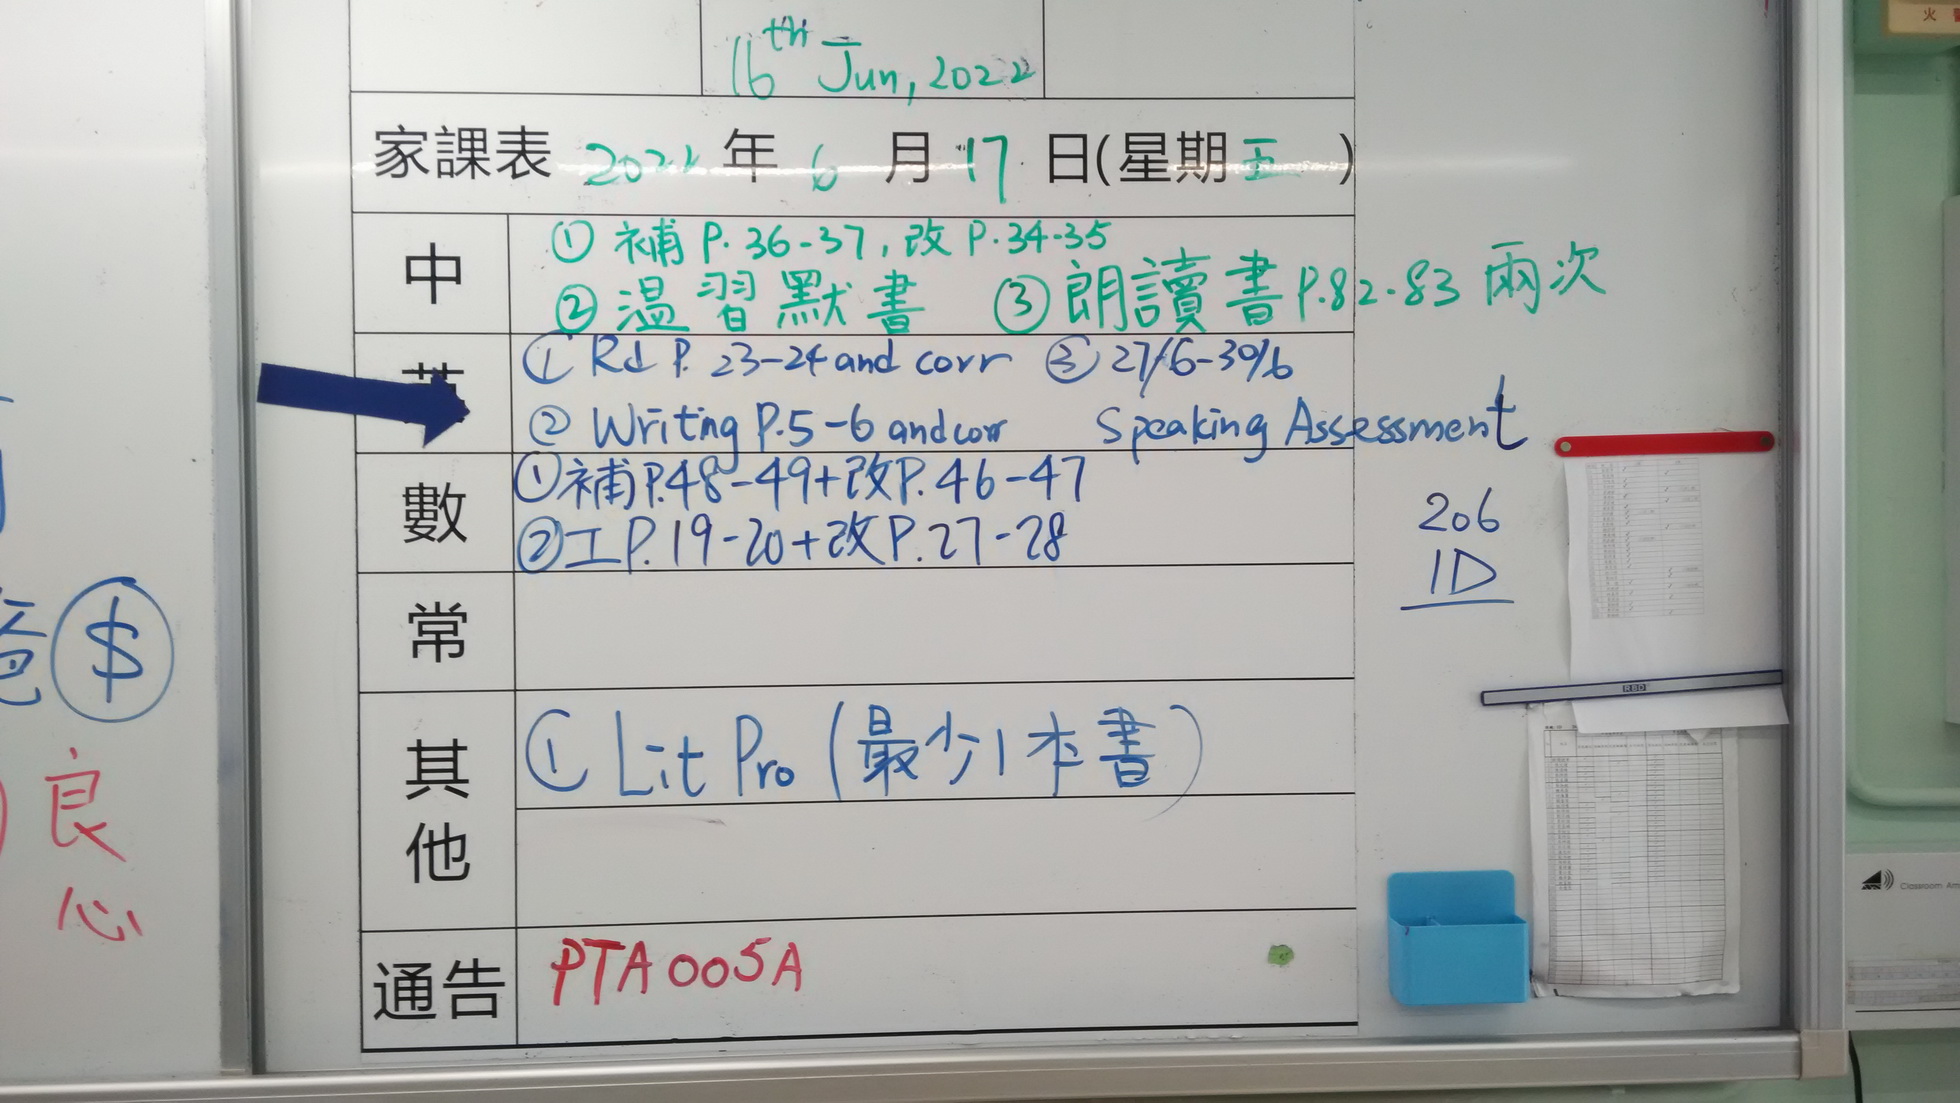 16th Jun, 2022
家課表 2022 年 6 月 17 日(星期五 )
中
① 補 P. 36-37, 改 P. 34-35
② 溫習默書 ③ 朗讀書 P.82-83 兩次
① Rd P. 23-24 and corr ③ 27/6-30/6
② Writing P.5-6 and corr Speaking Assessment
數
① 補P.48-49+改P.46-47
② 工P.19-20+改P.27-28
206
1D
常
其他
① Lit Pro (最少1本書)
通告 PTA005A
$
良
心
火
RBD
Classroom